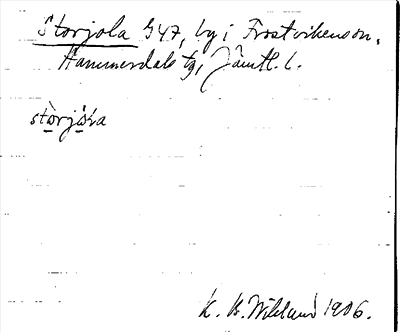 Storjola G47, by i Frostvikenson,
Hammerdals tg, Jämtl. l.
storjola
K. B. Wiklund 1906.